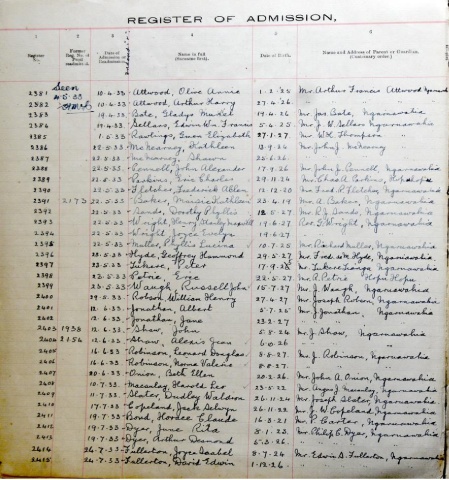 REGISTER OF ADMISSION,
1 2 3 4 5 6
Register No. Former Reg. No. Date of Admission Name in full (Surname first). Date of Birth. Name and Address of Parent or Guardian.
Seen
2381 10.4.33 Attwood, Olive Annie 1.2.25 Mr Arthur Francis Attwood
2382 10.4.33 Attwood, Arthur Harry 27.4.26
2383 19.4.33 Bate, Gladys 19.4.26 Mr Jas Bate, Ngaruawahia
2384 19.4.33 Sellars, Edwin Wm Francis 5.4.25 Mr J W Sellars Ngaruawahia
2385 1.5.33 Rawlings, Euan Elizabeth 27.1.27 Mr W.H. Thompson
2386 22.5.33 McNearney, Kathleen 13.9.26 Mr John J. McNearney
2387 22.5.33 McNearney, Shawn 25.6.26
2388 22.5.33 Pennell, John Alexander 17.9.26 Mr John J. Pennell, Ngaruawahia
2389 22.5.33 Perkins, Eric Charles 29.11.24 Mr Chas A. Perkins
2390 22.5.33 Fletcher, Frederick Allen 12.12.20 Mr Fred P. Fletcher, Ngaruawahia
2391 2173 22.5.33 Bakes, Maisie Kathleen 25.4.19 Mr A. Bakes, Ngaruawahia
2392 22.5.33 Sands, Dorothy Phyllis 12.5.27 Mr R J Sands, Ngaruawahia
2393 22.5.33 Wright, Henry 19.6.27 G. Wright, Ngaruawahia
2394 22.5.33 Wright, Joyce Evelyn 19.6.27
2395 22.5.33 Mullos, Phyllis Lucina 10.7.25 Mr Richard Mullos, Ngaruawahia
2396 Hyde, Geoffrey Hammond 29.5.27 Mr Fred Wm Hyde, Ngaruawahia
2397 Tukere, Peter Mr Tukere Tonga Ngaruawahia
2398 Patrie, Ewe 22.5.27 Mr A. Patrie
2399 Waugh, Russell John 15.7.27 Mr J. Waugh, Ngaruawahia
2400 29.5.33 Robson, William Henry 27.4.27 Mr Joseph Robson, Ngaruawahia
2401 12.6.33 Jonathan, Albert 5.7.25 Mr J Jonathan, Ngaruawahia
2402 12.6.33 Jonathan, Jane 23.2.27
2403 1938 12.6.33 Shaw, John 5.8.24 Mr J. Shaw, Ngaruawahia
2404 2156 12.6.33 Shaw, Alexis Jean
2405 16.6.33 Robinson, Leonard Douglas 8.8.27 Mr J. Robinson, Ngaruawahia
2406 16.6.33 Robinson, Norma Valerie 8.8.27
2407 20.6.33 Onion, Beth Ellen 20.2.26 Mr John A. Onion, Ngaruawahia
2408 10.7.33 Macaulay, Harold Leo 23.5.22 Mr Angus J Macaulay, Ngaruawahia
2409 11.7.33 Slater, Dudley Waldson 26.11.24 Mr Joseph Slater, Ngaruawahia
2410 17.7.33 Copeland, Jack Selwyn 26.11.22 Mr G. W Copeland, Ngaruawahia
2411 19.7.33 Bond, Horace Claude 16.3.21 Mr P. Carter, Ngaruawahia
2412 19.7.33 Dyer, June Rita 8.1.25 Mr Philip C. Dyer, Ngaruawahia
2413 19.7.33 Dyer, Arthur Desmond 5.3.26
2414 24.7.33 Fullerton, Joyce Isabel 8.7.24 Mr Edwin S. Fullerton, Ngaruawahia
2415 24.7.33 Fullerton, David Edwin 1.12.26